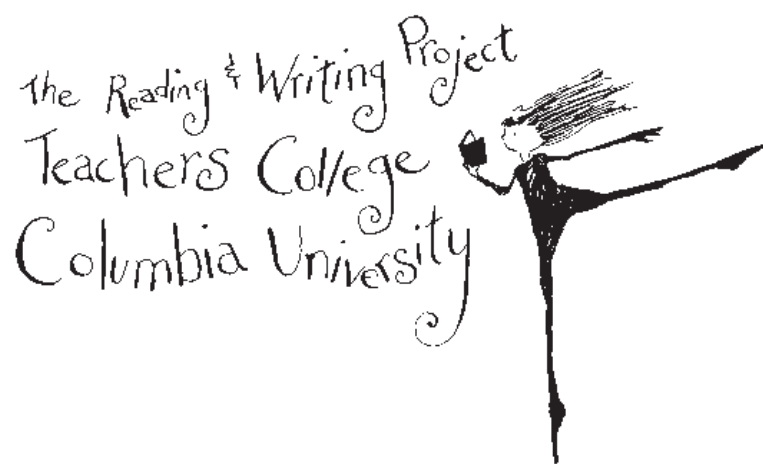 The Reading & Writing Project
Teachers College
Columbia University